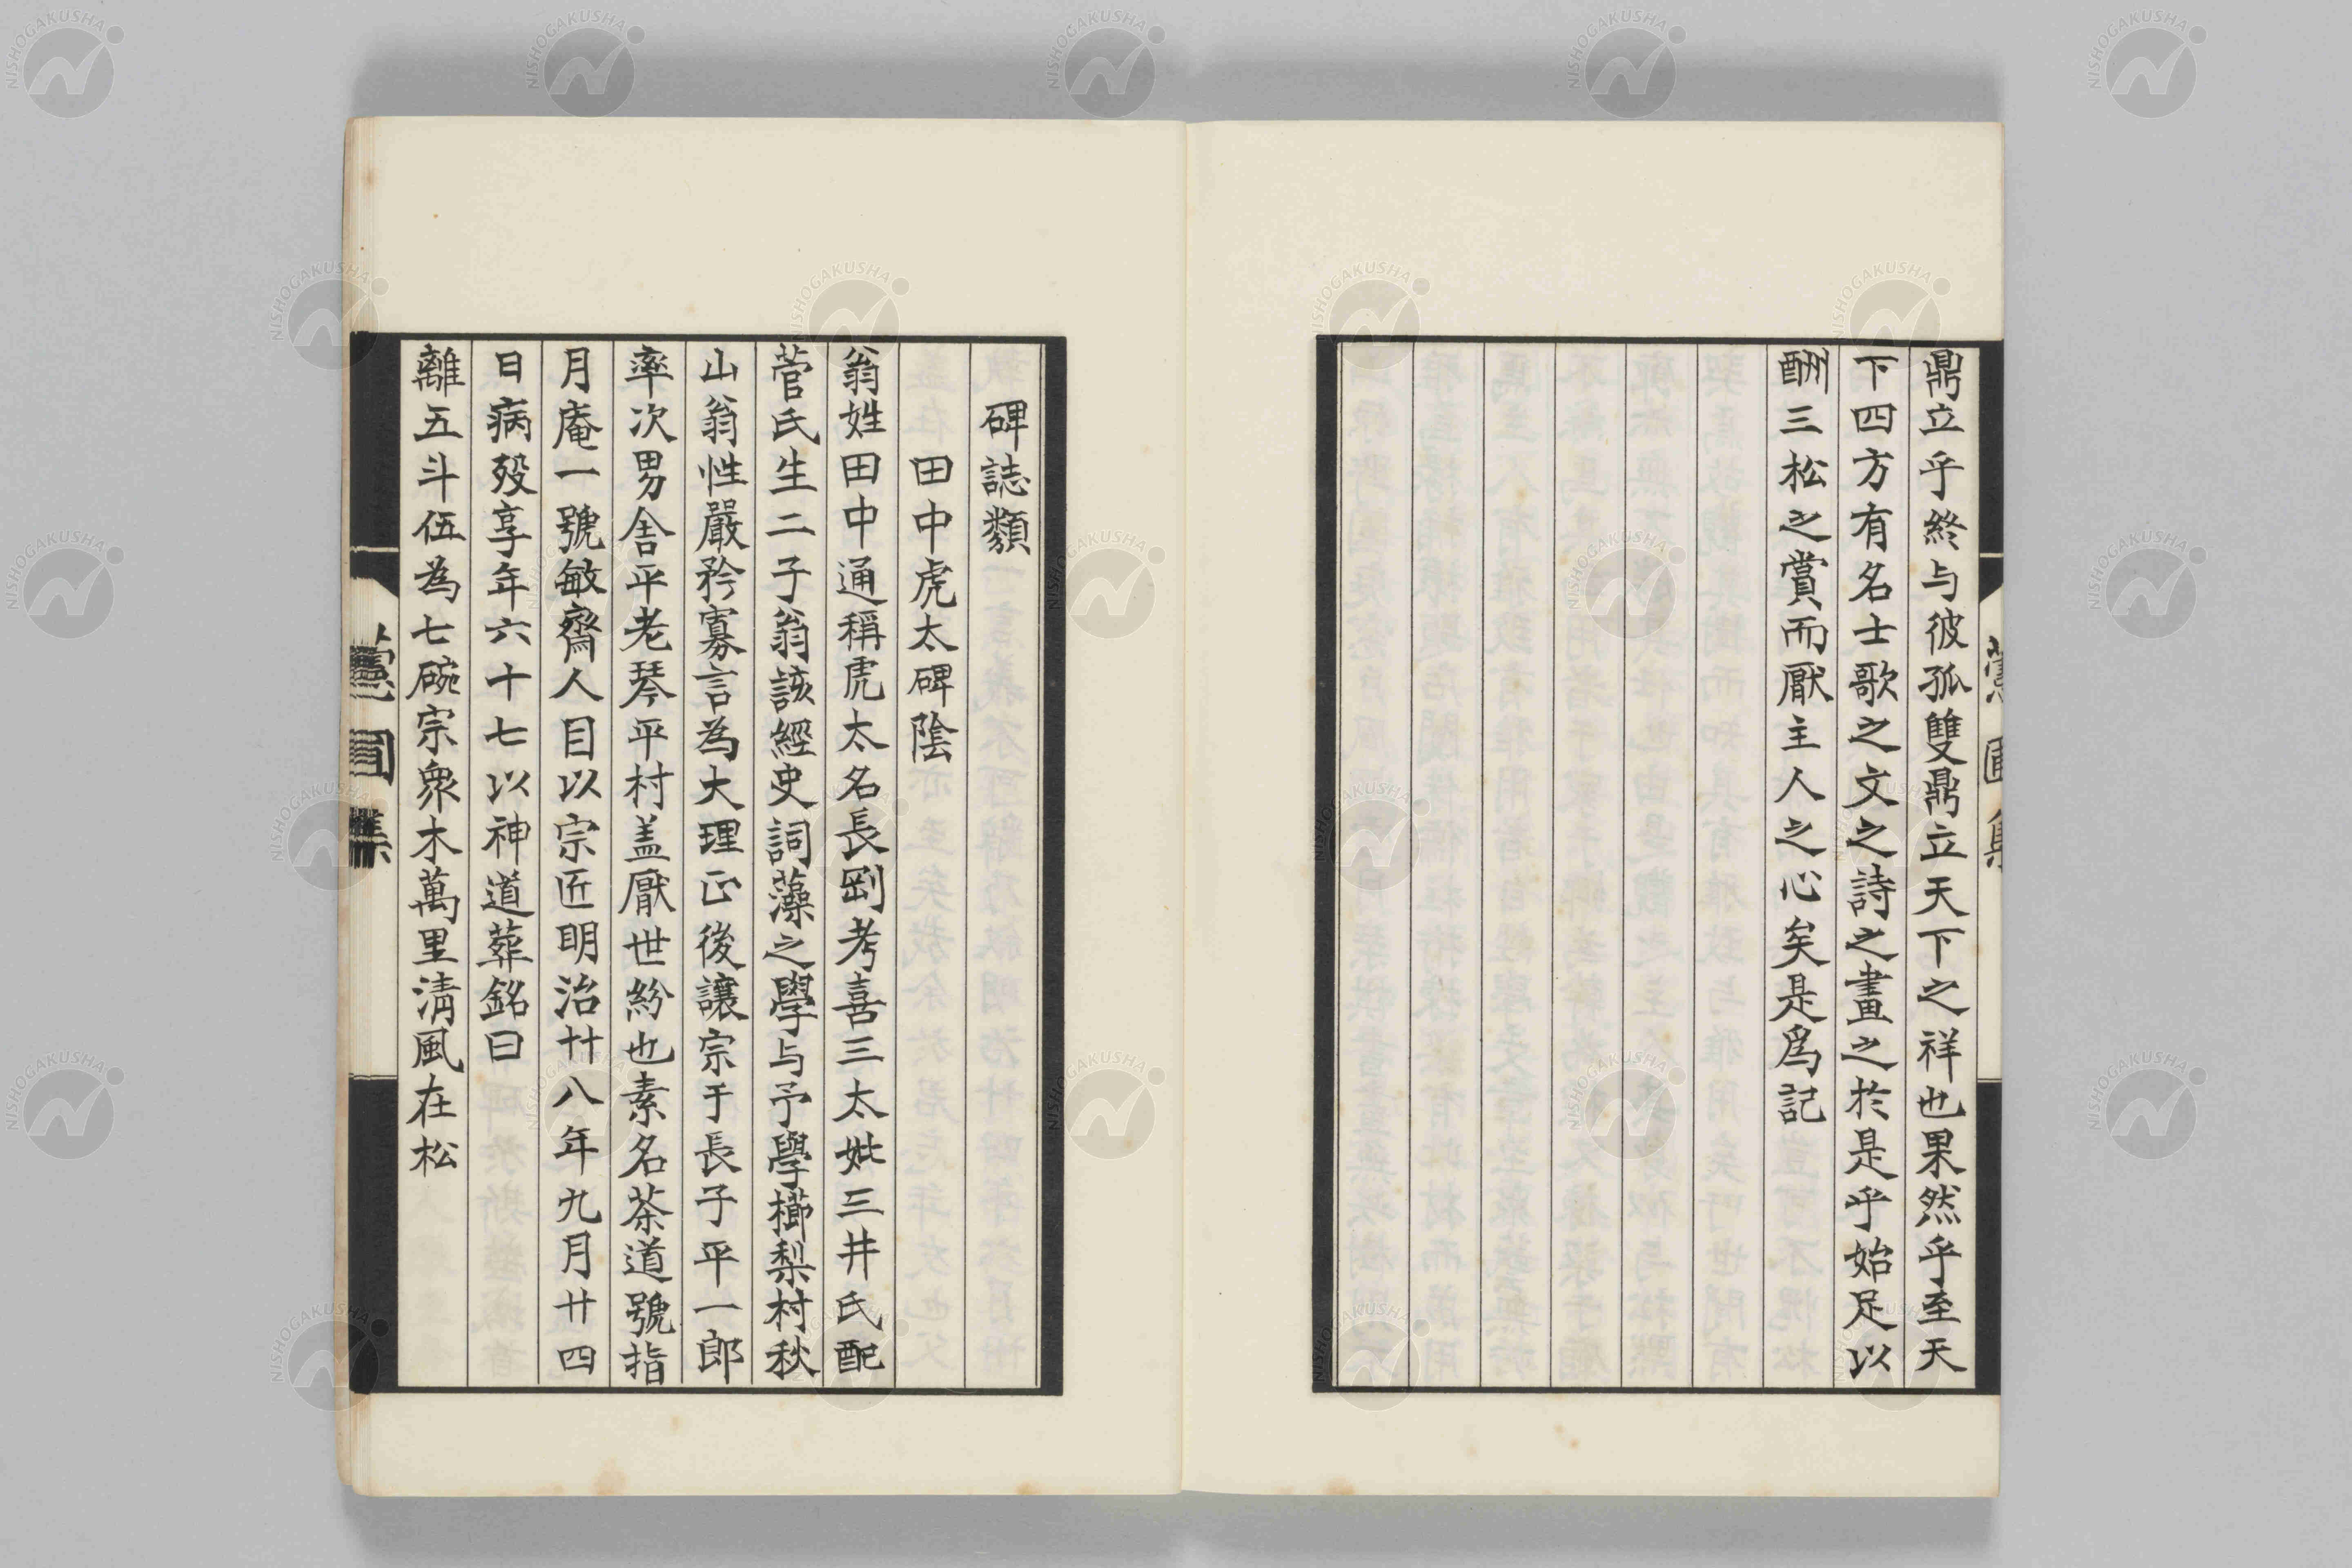 鼎立乎終与彼孤雙鼎立天下之祥也果然乎至天
下四方有名士歌之文之詩之畫之於是乎始足以
酬三松之賞而厭主人之心矣是爲記
碑誌類
田中虎太碑陰
翁姓田中通稱虎太名長剛考喜三太妣三井氏配
菅氏生二子翁該經史詞藻之學与予學櫛梨村秋
山翁性嚴矜寡言為大理正後讓宗于長子平一郎
率次男舍平老琴平村盖厭世紛也素名茶道號指
月庵一號敏齋人目以宗匠明治廿八年九月廿四
日病歿享年六十七以神道葬銘曰
離五斗伍為七碗宗衆木萬里清風在松
NISHOGAKUSHA